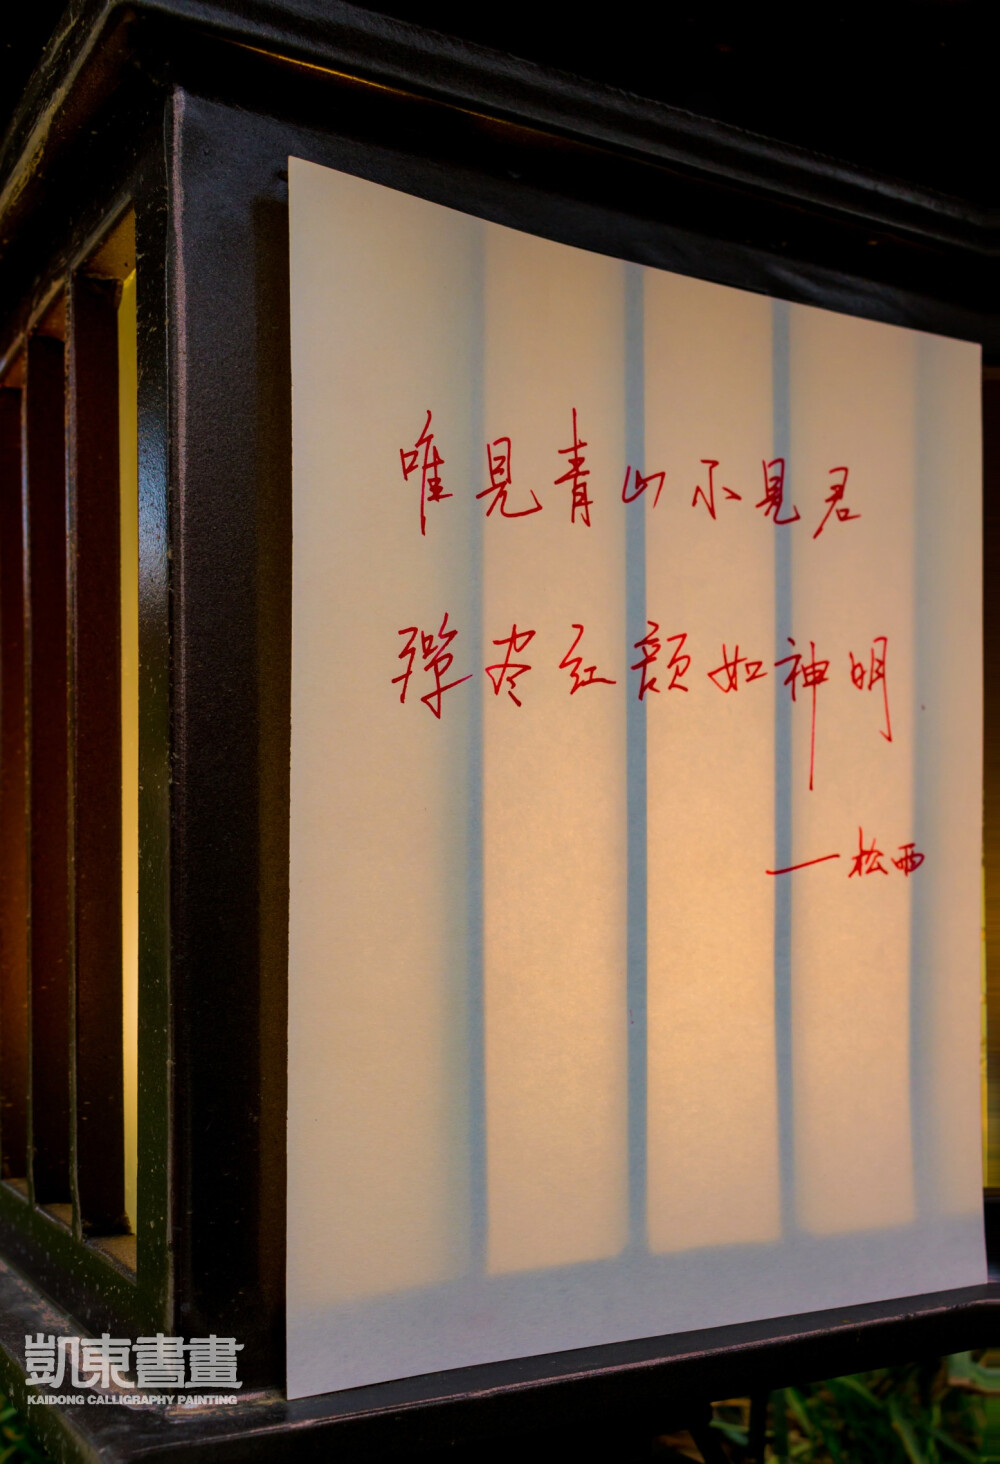 唯見青山不見君
尽红颜如神明
—松西
凱東書畫
KAIDONG CALLIGRAPHY PAINTING